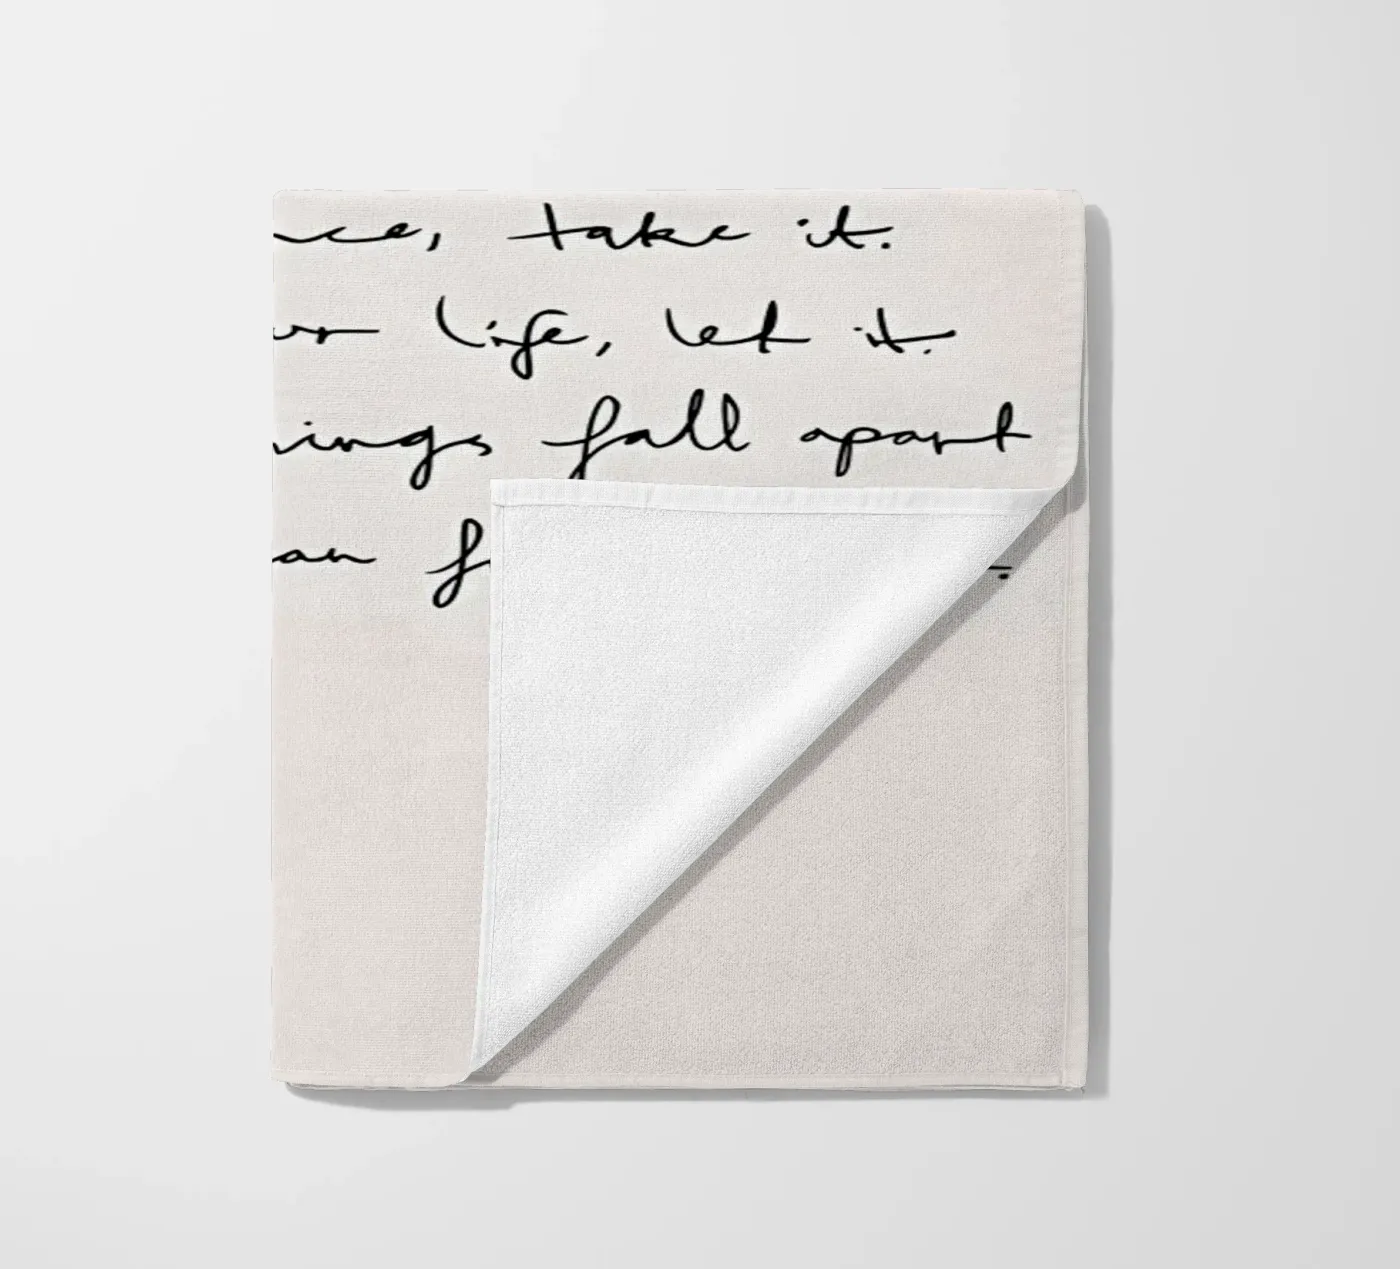 nce, take it.
ur life, let it.
hings fall apart
an f
.